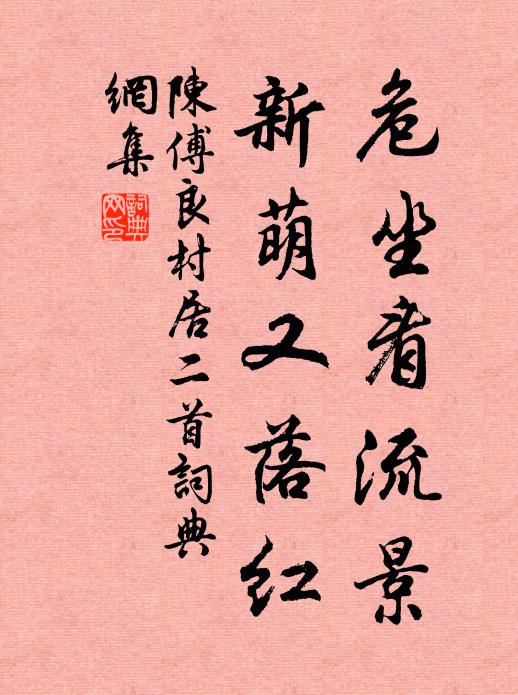 危坐看流景
新萌又落红
陳傅良村居二首詞典
網集
詞典
网印